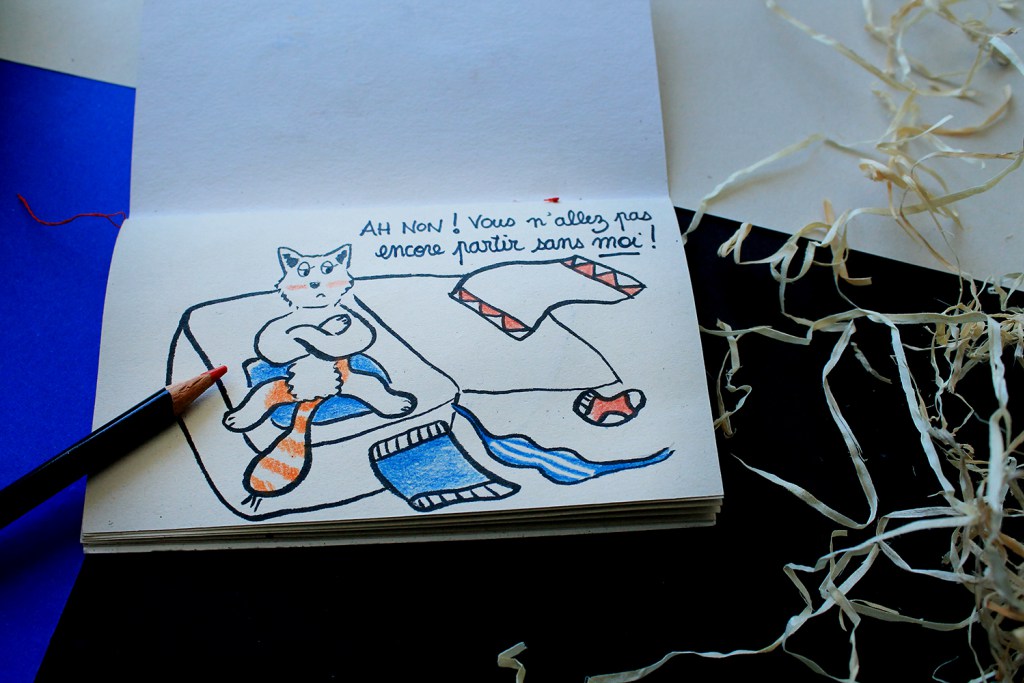 AH NON ! Vous n'allez pas
encore partir sans moi !